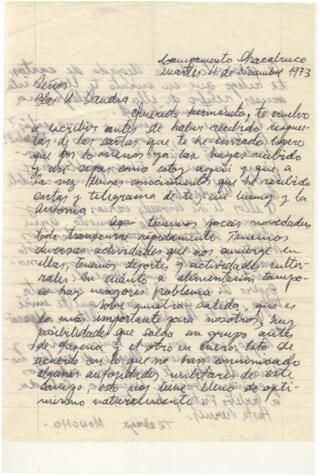 Campamento Chacabuco
martes 4 de Diciembre 1973
Señor
Querido hermanito, te vuelvo
a escribir antes de haber recibido respues
ta de las cartas que te he enviado. Espero
que por lo menos ya las hayas recibido
y así sepas como estoy aquí y que a
la vez tienes conocimiento que he recibido
cartas y telegrama de ti mi mamy y la
Antonia.
Aquí tenemos pocas novedades,
todo transcurre rápidamente. Tenemos
diversas actividades que nos sumerge en
ellas, tenemos deportes y actividades cultu
rales. En cuanto a alimentación tampo
co hay mayores problemas.
Sobre nuestra salida, que es
lo más importante para nosotros, hay
posibilidades que salga un grupo antes
de pascua y el otro en Enero. Esto de
acuerdo con lo que nos han comunicado
algunas autoridades militares de este
campo. Esto nos tiene lleno de opti-
mismo naturalmente.